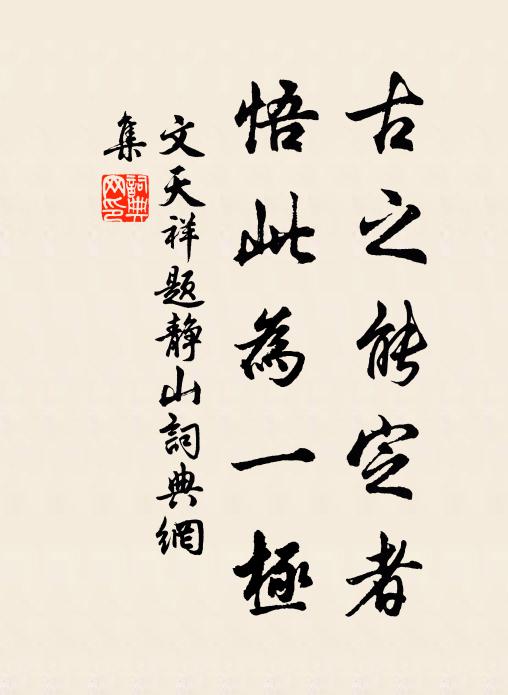 古之能定者
悟此為一極
文天祥题静山詞典網
集
詞典網印